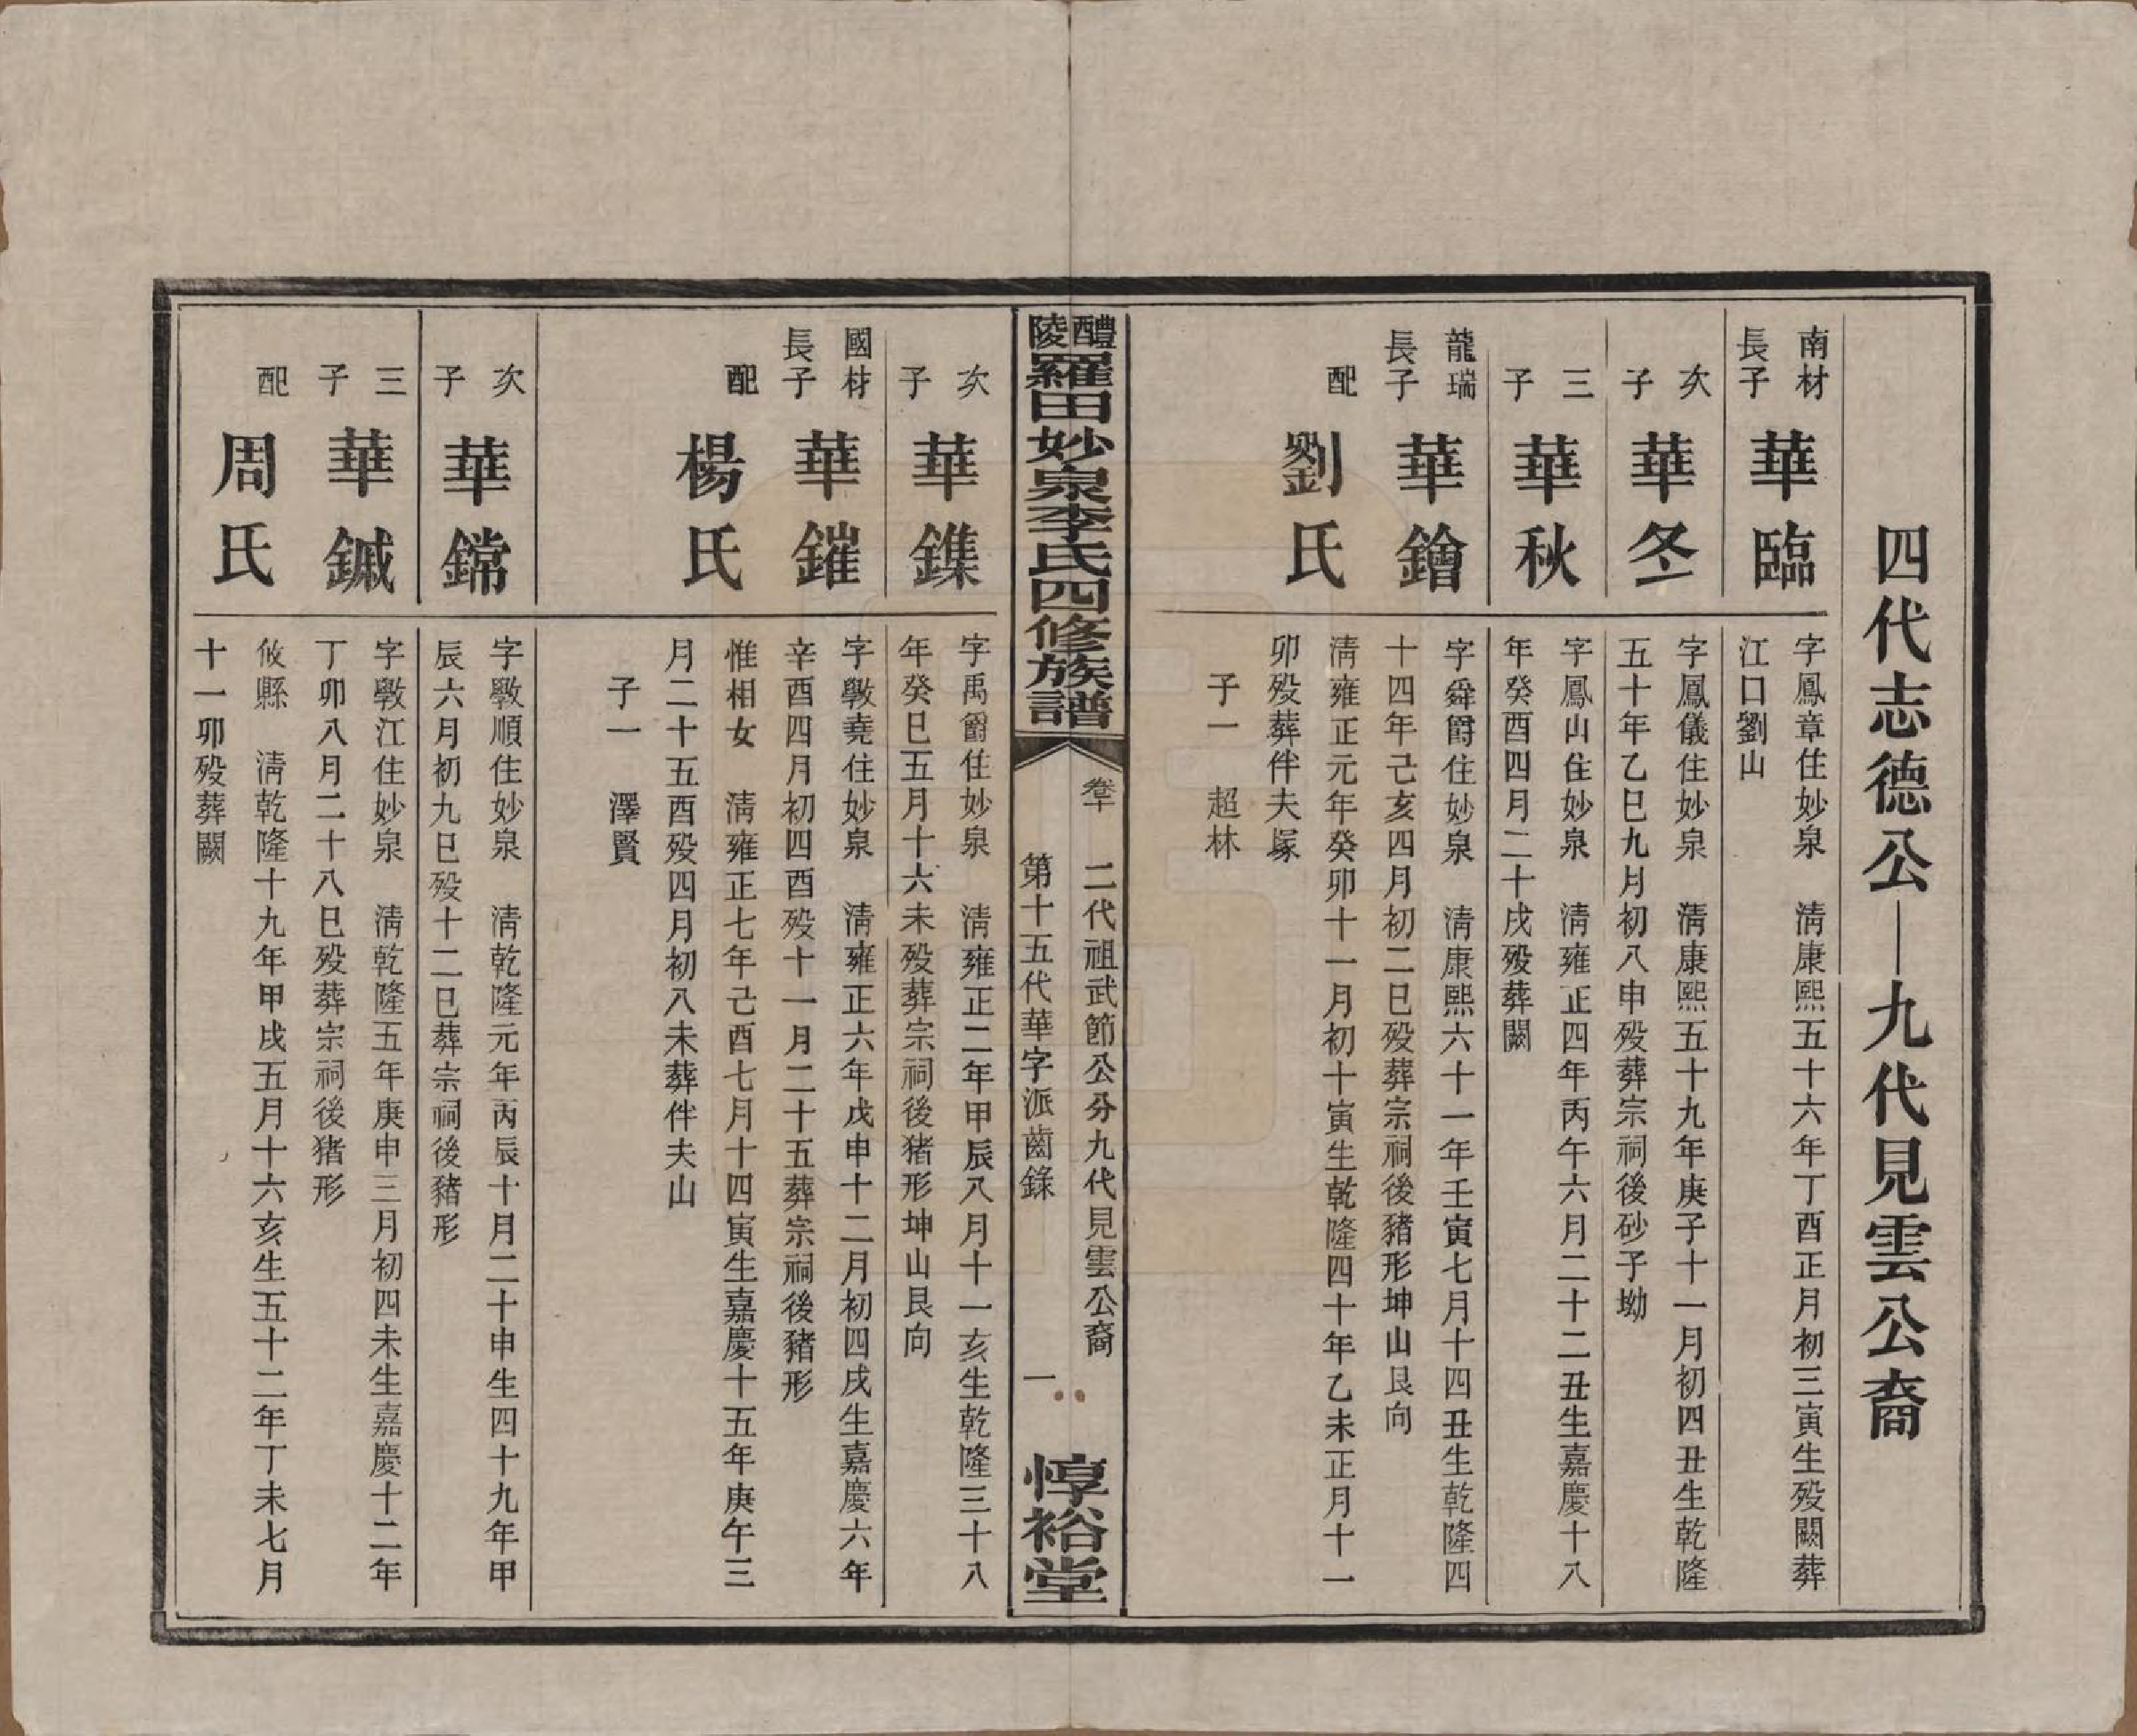 四代志德公—九代見雲公裔
南材
長子
華臨
字鳳章住妙泉 清康熙五十六年丁酉正月初三寅生歿闕葬
江口劉山
次
子
華冬
字鳳儀住妙泉 清康熙五十九年庚子十一月初四丑生乾隆
五十年乙巳九月初八申歿葬宗祠後砂子坳
三
子
華秋
字鳳山住妙泉 清雍正四年丙午六月二十二丑生嘉慶十八
年癸酉四月二十戌歿葬闕
龍瑞
長子
華鏳
字舜爵住妙泉 清康熙六十一年壬寅七月十四丑生乾隆四
十四年己亥四月初二巳歿葬宗祠後豬形坤山艮向
配
劉氏
清雍正元年癸卯十一月初十寅生乾隆四十年乙未正月十一
卯歿葬伴夫塚
子一 超林
醴陵羅田妙泉李氏四修族譜
卷十
二代祖武節公分九代見雲公裔
第十五代華字派齒錄
一
惇裕堂
次
子
華鏶
字禹爵住妙泉 清雍正二年甲辰八月十一亥生乾隆三十八
年癸巳五月十六未歿葬宗祠後猪形坤山艮向
國材
長子
華鏙
字斅堯住妙泉 清雍正六年戊申十二月初四戌生嘉慶六年
辛酉四月初四酉歿十一月二十五葬宗祠後豬形
配
楊氏
惟相女 清雍正七年己酉七月十四寅生嘉慶十五年庚午三
月二十五酉歿四月初八未葬伴夫山
子一 澤賢
次
子
華鏛
字斅順住妙泉 清乾隆元年丙辰十月二十申生四十九年甲
辰六月初九巳歿十二巳葬宗祠後豬形
三
子
華鏚
字斅江住妙泉 清乾隆五年庚申三月初四未生嘉慶十二年
丁卯八月二十八巳歿葬宗祠後猪形
配
周氏
攸縣 清乾隆十九年甲戌五月十六亥生五十二年丁未七月
十一卯歿葬闕